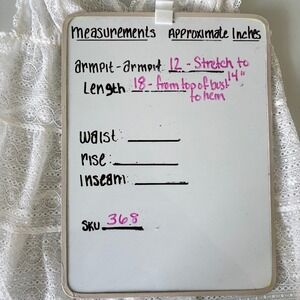 measurements Approximate Inches
armpit-armpit 12 - Stretch to 14"
Length 18 - from top of bust
to hem
waist:
rise:
Inseam:
SKU 368